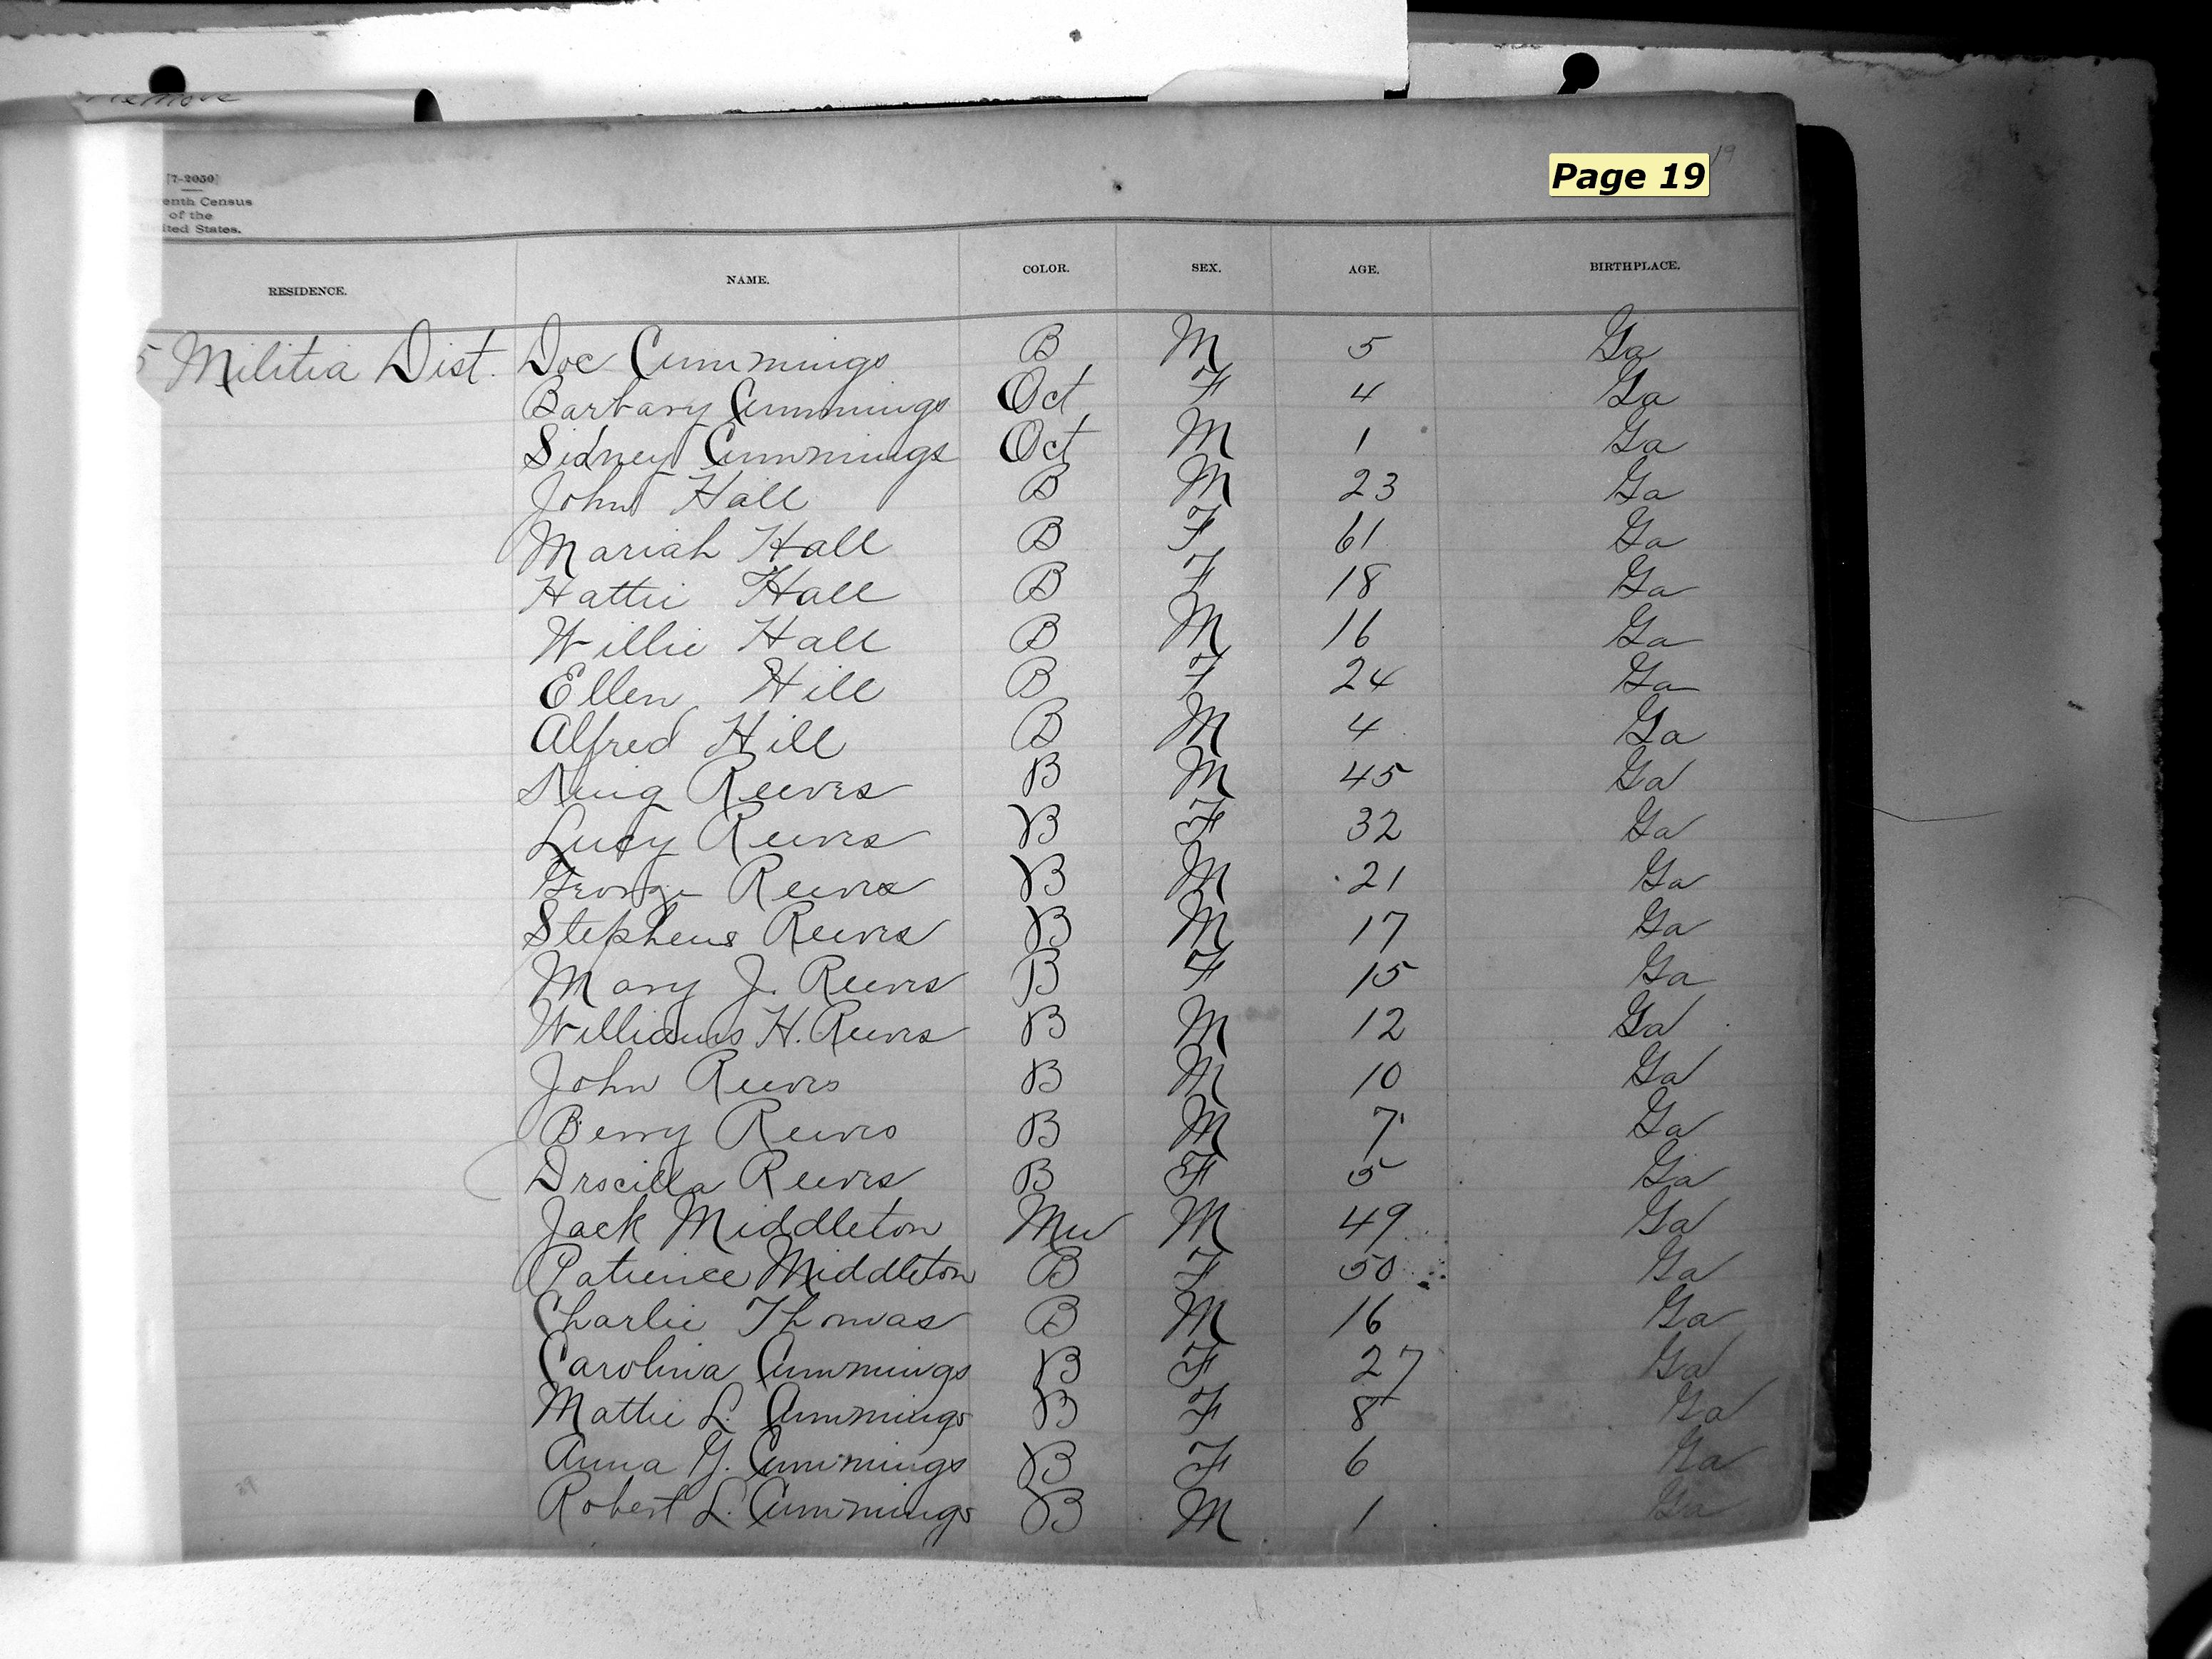 Remove
Page 19
19
[7-2050]
enth Census
of the
ited States.
RESIDENCE. NAME. COLOR. SEX. AGE. BIRTHPLACE.
5 Militia Dist. Doc Cummings B M 5 Ga
Barbary Cummings Oct F 4 Ga
Sidney Cummings Oct M 1 Ga
John Hall B M 23 Ga
Mariah Hall B F 61 Ga
Hattie Hall B F 18 Ga
Willie Hall B M 16 Ga
Ellen Hill B F 24 Ga
Alfred Hill B M 4 Ga
King Reeves B M 45 Ga
Lucy Reeves B F 32 Ga
George Reeves B M 21 Ga
Stephens Reeves B M 17 Ga
Mary J. Reeves B F 15 Ga
Williams H. Reeves B M 12 Ga
John Reeves B M 10 Ga
Berry Reeves B M 7 Ga
Drscilla Reeves B F 5 Ga
Jack Middleton Mu M 49 Ga
Patience Middleton B F 50 Ga
Charlie Thomas B M 16 Ga
Carolina Cummings B F 27 Ga
Mattie L. Cummings B F 8 Ga
Anna Y. Cummings B F 6 Ga
Robert L. Cummings B M 1 Ga